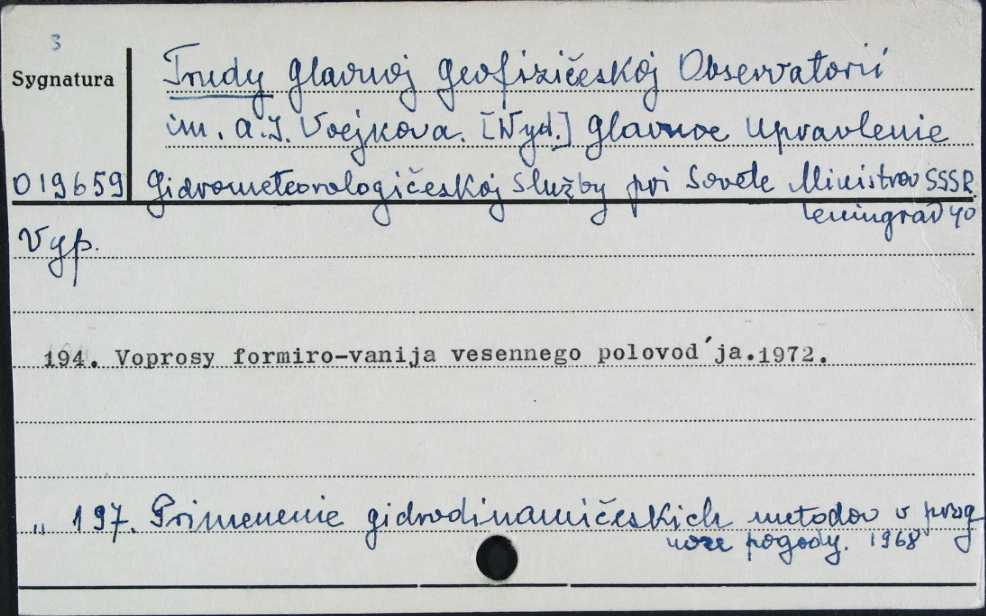 3
Sygnatura
Trudy Glavnoj Geofizičeskoj Observatorii
im. A.I. Voejkova. [Wyd.] Glavnoe Upravlenie
019659 Gidrometeorologičeskoj Služby pri Sovete Ministrov SSSR
Leningrad 40
Vyp.
194. Voprosy formiro-vanija vesennego polovod´ja.1972.
„ 197. Primenenie gidrodinamičeskich metodov v prog
noze pogody. 1968